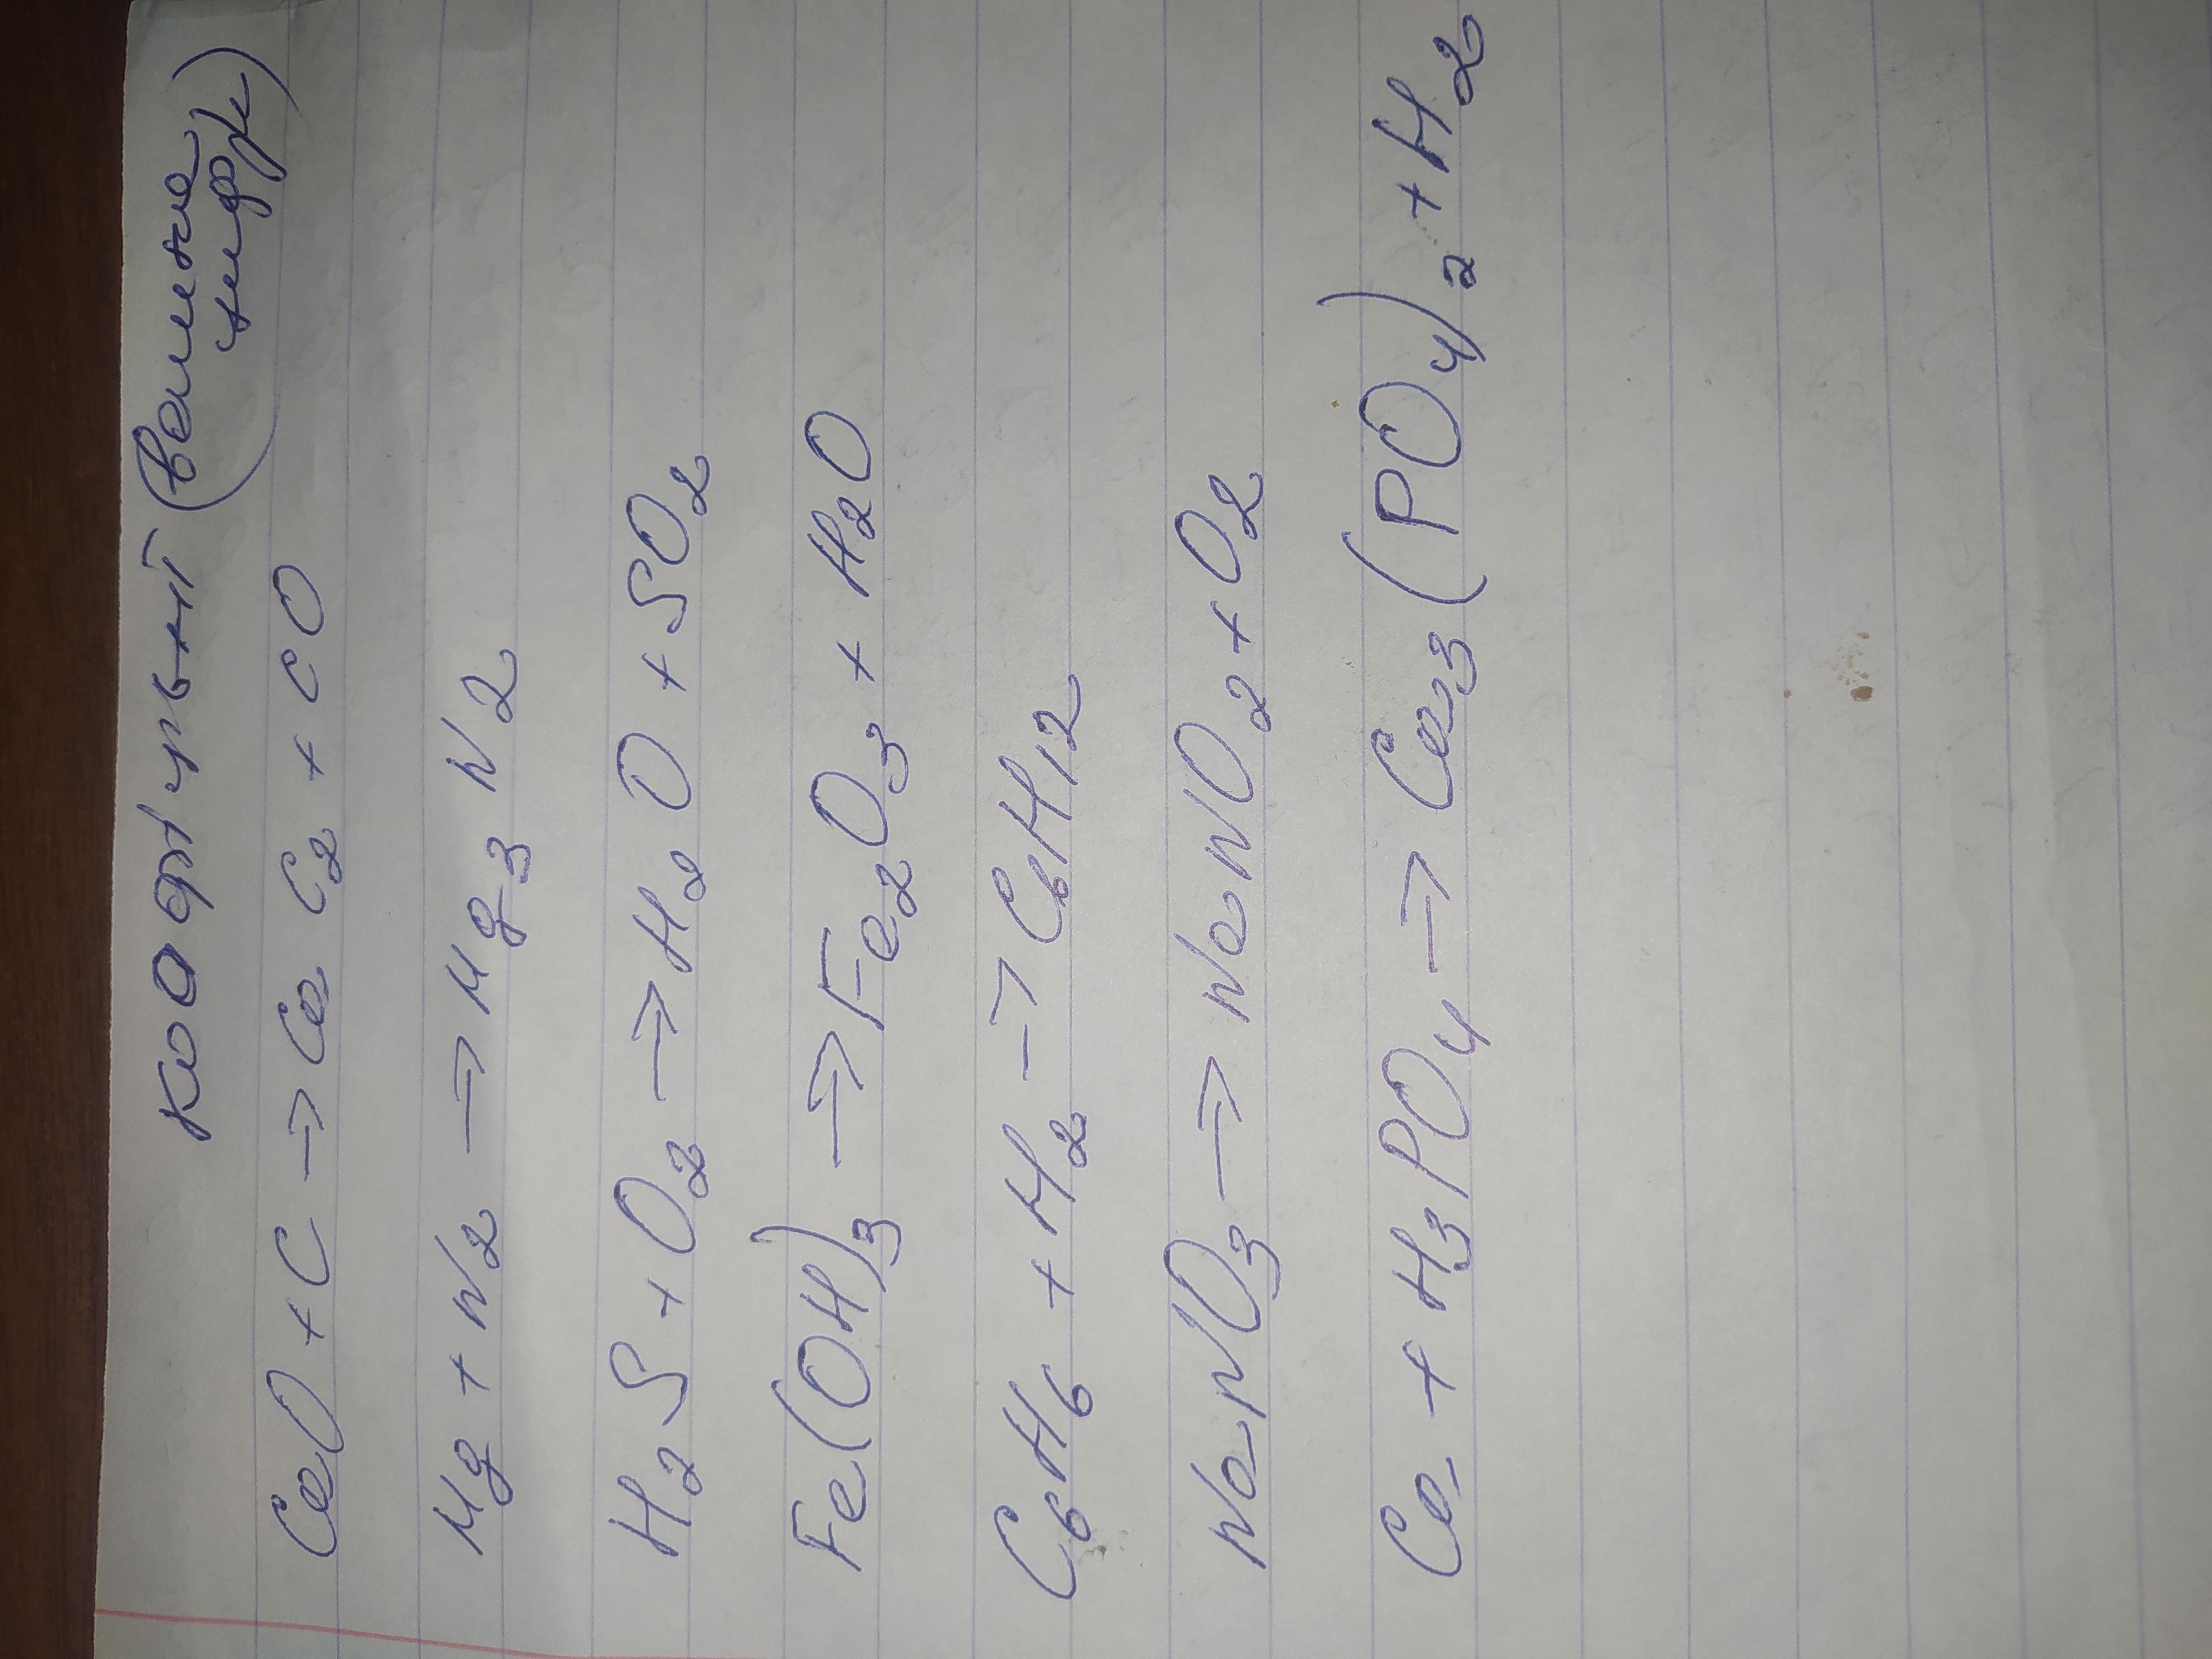 коофіцієнт (велика
цифра)
CaO + C → CaC₂ + CO
Mg + N₂ → Mg₃N₂
H₂S + O₂ → H₂O + SO₂
Fe(OH)₃ → Fe₂O₃ + H₂O
C₆H₆ + H₂ → C₆H₁₂
NaNO₃ → NaNO₂ + O₂
Ca + H₃PO₄ → Ca₃(PO₄)₂ + H₂